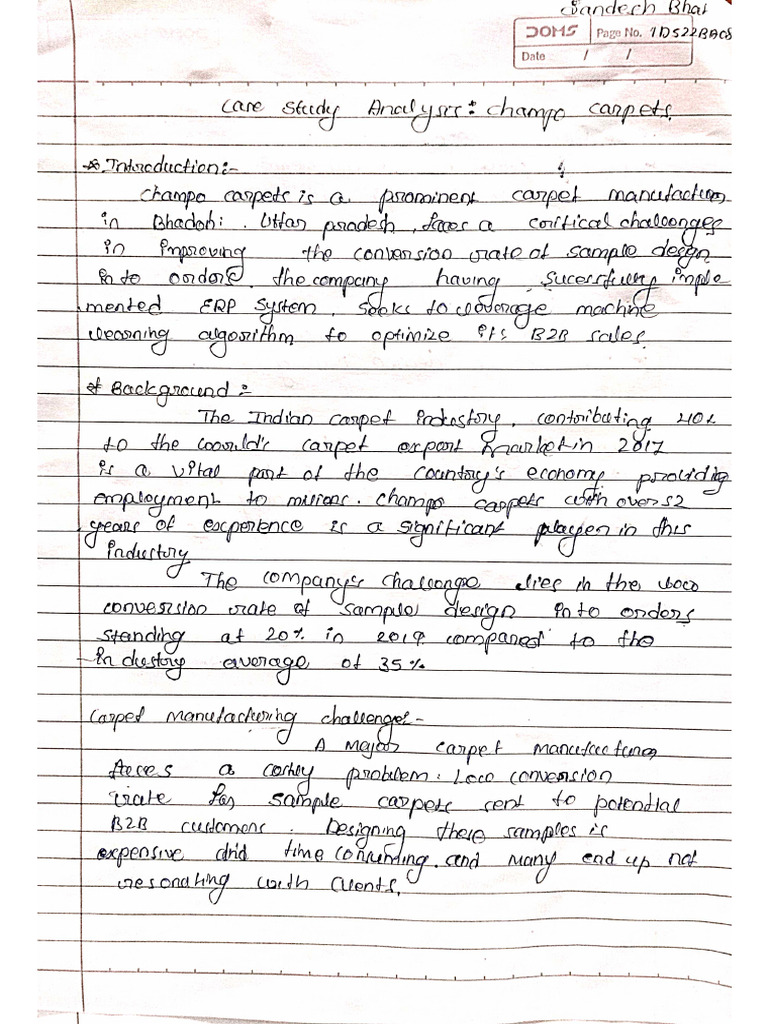 Sandech Bhat
DOMS Page No. 1DS22BA08
Date / /
Case Study Analysis : Champo carpets.
* Introduction :-
Champo carpets is a prominent carpet manufacturing
in Bhadohi. Uttar pradesh, faces a critical challenges
in improving the conversion rate of sample design
into orders. the company having sucessfully imple
mented ERP system. Seeks to leverage machine
learning algorithm to optimize its B2B sales.
* Background :-
The Indian carpet industry, contributing 40%
to the world's carpet export market in 2017
is a vital part of the country's economy providing
employment to millions. Champo carpets with over 52
years of experience is a significant player in this
industry
The company's challenge lies in the low
conversion rate of sample design into orders
standing at 20% in 2019 compared to the
industry average of 35%
Carpet manufacturing challenges -
A Major carpet manufacturing
faces a costly problem. Low conversion
rate for sample carpets sent to potential
B2B customers. Designing these samples is
expensive and time consuming. and many end up not
resonating with clients.